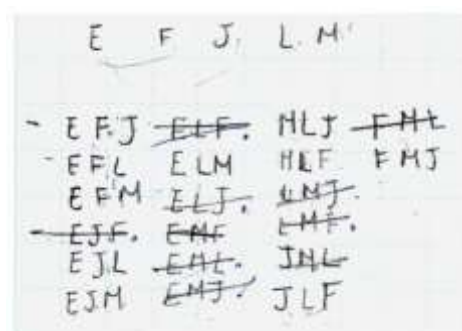 E F J. L. M.
- E F J ELF. MLJ FML
- E F L ELM MLF FMJ
E F M ELJ. LMJ.
EJF. EMF LMF.
EJL EML. JML
EJM EMJ. JLF